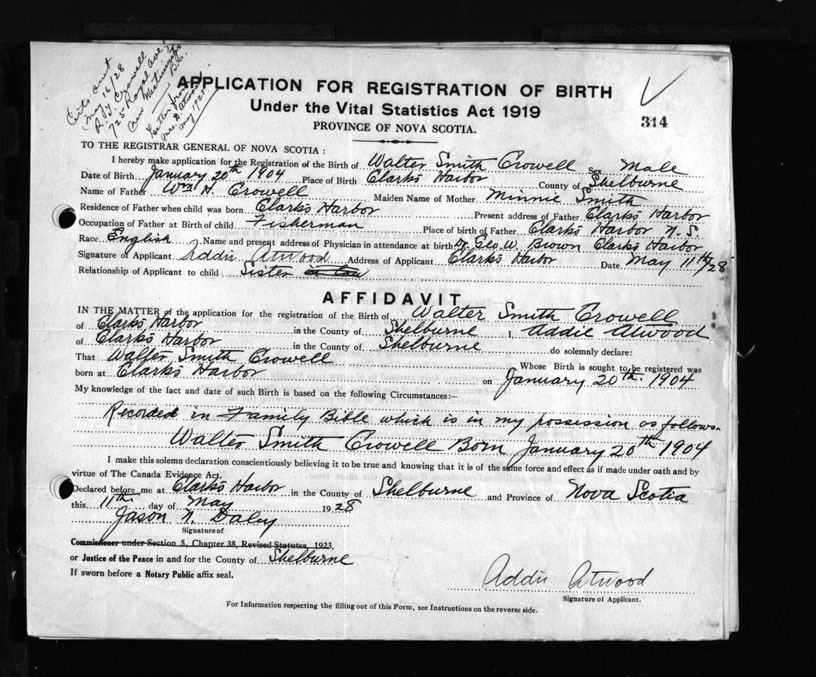 Certs sent
May 16/28
R. Y. Crowell
725 Royal Ave
New Westminster
B.C.
Letter from
Mrs. D. Atwood
May 1928
314
APPLICATION FOR REGISTRATION OF BIRTH
Under the Vital Statistics Act 1919
PROVINCE OF NOVA SCOTIA.
TO THE REGISTRAR GENERAL OF NOVA SCOTIA:
I hereby make application for the Registration of the Birth of Walter Smith Crowell Sex Male
Date of Birth January 20th 1904 Place of Birth Clarks Harbor County of Shelburne
Name of Father Wm H. Crowell Maiden Name of Mother Minnie Smith
Residence of Father when child was born Clarks Harbor Present address of Father Clarks Harbor
Occupation of Father at Birth of child Fisherman Place of birth of Father Clarks Harbor N.S.
Race English Name and present address of Physician in attendance at birth Dr. Geo. W. Brown Clarks Harbor
Signature of Applicant Addie Atwood Address of Applicant Clarks Harbor Date May 11th/28
Relationship of Applicant to child Sister
AFFIDAVIT
IN THE MATTER of the application for the registration of the Birth of Walter Smith Crowell
of Clarks Harbor in the County of Shelburne I, Addie Atwood
of Clarks Harbor in the County of Shelburne do solemnly declare:
That Walter Smith Crowell Whose Birth is sought to be registered was
born at Clarks Harbor on January 20th. 1904
My knowledge of the fact and date of such Birth is based on the following Circumstances:—
Recorded in Family Bible which is in my possession as follows.
Walter Smith Crowell Born January 20th 1904
I make this solemn declaration conscientiously believing it to be true and knowing that it is of the same force and effect as if made under oath and by
virtue of The Canada Evidence Act.
Declared before me at Clarks Harbor in the County of Shelburne and Province of Nova Scotia
this 11th. day of May 1928
Jason N. Daley
Signature of
Commissioner under Section 5, Chapter 38, Revised Statutes, 1923,
or Justice of the Peace in and for the County of Shelburne
If sworn before a Notary Public affix seal.
Addie Atwood
Signature of Applicant.
For Information respecting the filling out of this Form, see Instructions on the reverse side.